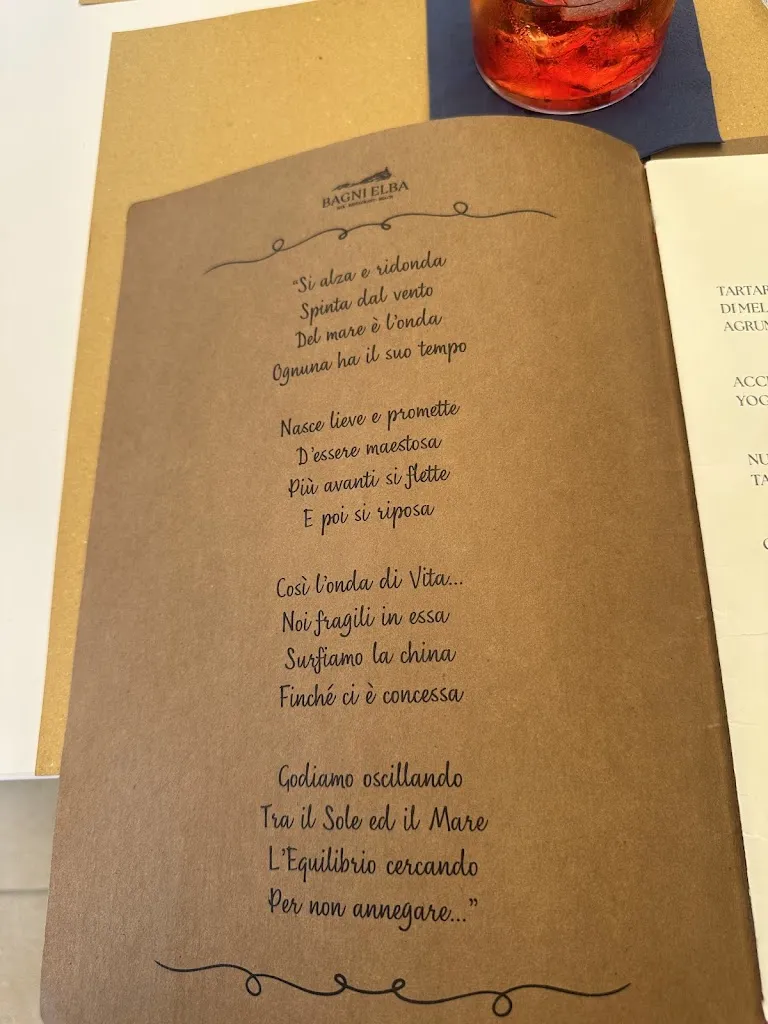 BAGNI ELBA
“Si alza e ridonda
Spinta dal vento
Del mare è l’onda
Ognuna ha il suo tempo
Nasce lieve e promette
D’essere maestosa
Più avanti si flette
E poi si riposa
Così l’onda di Vita...
Noi fragili in essa
Surfiamo la china
Finché ci è concessa
Godiamo oscillando
Tra il Sole ed il Mare
L’Equilibrio cercando
Per non annegare...”
TARTAR
DI MEL
AGRUM
ACC
YOG
NU
TA